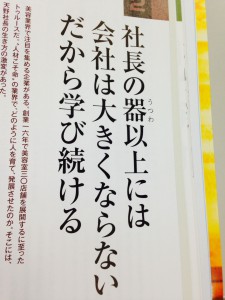 社長の器以上には
うつわ
会社は大きくならない
だから学び続ける
美容業界で注目を集める企業がある。創業一六年で美容室三〇店舗を展開するに至った
トゥルースだ。“人材こそ命”の業界で、どのように人を育て、発展させたのか。そこには、
天野社長の生き方の激変があった。